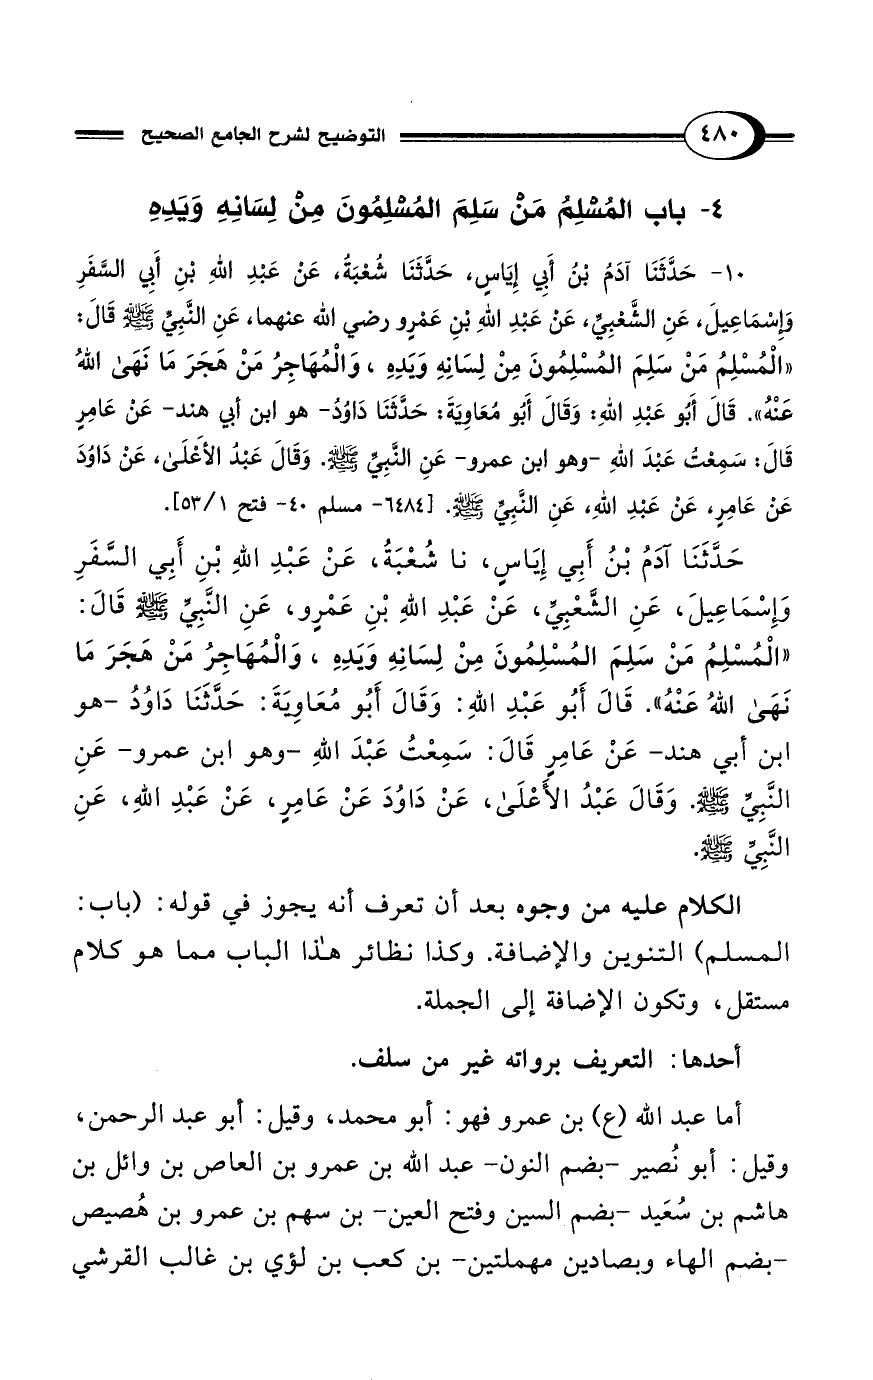 ٤٨٠ التوضيح لشرح الجامع الصحيح
٤- باب المُسْلِمُ مَنْ سَلِمَ المُسْلِمُونَ مِنْ لِسَانِهِ وَيَدِهِ
١٠- حَدَّثَنَا آدَمُ بْنُ أَبِي إِيَاسٍ، حَدَّثَنَا شُعْبَةُ، عَنْ عَبْدِ اللهِ بْنِ أَبِي السَّفَرِ
وَإِسْمَاعِيلَ، عَنِ الشَّعْبِيِّ، عَنْ عَبْدِ اللهِ بْنِ عَمْرٍو رضي الله عنهما، عَنِ النَّبِيِّ ﷺ قَالَ:
«الْمُسْلِمُ مَنْ سَلِمَ المُسْلِمُونَ مِنْ لِسَانِهِ وَيَدِهِ ، وَالْمُهَاجِرُ مَنْ هَجَرَ مَا نَهَىٰ اللهُ
عَنْهُ». قَالَ أَبُو عَبْدِ اللهِ: وَقَالَ أَبُو مُعَاوِيَةَ: حَدَّثَنَا دَاوُدُ- هو ابن أبي هند- عَنْ عَامِرٍ
قَالَ: سَمِعْتُ عَبْدَ اللهِ -وهو ابن عمرو- عَنِ النَّبِيِّ ﷺ. وَقَالَ عَبْدُ الأَعْلَىٰ، عَنْ دَاوُدَ
عَنْ عَامِرٍ، عَنْ عَبْدِ اللهِ، عَنِ النَّبِيِّ ﷺ. [٦٤٨٤- مسلم ٤٠- فتح ١/ ٥٣].
حَدَّثَنَا آدَمُ بْنُ أَبِي إِيَاسٍ، نا شُعْبَةُ، عَنْ عَبْدِ اللهِ بْنِ أَبِي السَّفَرِ
وَإِسْمَاعِيلَ، عَنِ الشَّعْبِيِّ، عَنْ عَبْدِ اللهِ بْنِ عَمْرٍو، عَنِ النَّبِيِّ ﷺ قَالَ:
«الْمُسْلِمُ مَنْ سَلِمَ المُسْلِمُونَ مِنْ لِسَانِهِ وَيَدِهِ ، وَالْمُهَاجِرُ مَنْ هَجَرَ مَا
نَهَىٰ اللهُ عَنْهُ». قَالَ أَبُو عَبْدِ اللهِ: وَقَالَ أَبُو مُعَاوِيَةَ: حَدَّثَنَا دَاوُدُ -هو
ابن أبي هند- عَنْ عَامِرٍ قَالَ: سَمِعْتُ عَبْدَ اللهِ -وهو ابن عمرو- عَنِ
النَّبِيِّ ﷺ. وَقَالَ عَبْدُ الأَعْلَىٰ، عَنْ دَاوُدَ عَنْ عَامِرٍ، عَنْ عَبْدِ اللهِ، عَنِ
النَّبِيِّ ﷺ.
الكلام عليه من وجوه بعد أن تعرف أنه يجوز في قوله: (باب:
المسلم) التنوين والإضافة. وكذا نظائر هذا الباب مما هو كلام
مستقل، وتكون الإضافة إلى الجملة.
أحدها: التعريف برواته غير من سلف.
أما عبد الله (ع) بن عمرو فهو: أبو محمد، وقيل: أبو عبد الرحمن،
وقيل: أبو نُصير -بضم النون- عبد الله بن عمرو بن العاص بن وائل بن
هاشم بن سُعَيد -بضم السين وفتح العين- بن سهم بن عمرو بن هُصيص
-بضم الهاء وبصادين مهملتين- بن كعب بن لؤي بن غالب القرشي